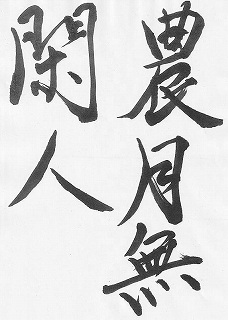 農月無
閑人